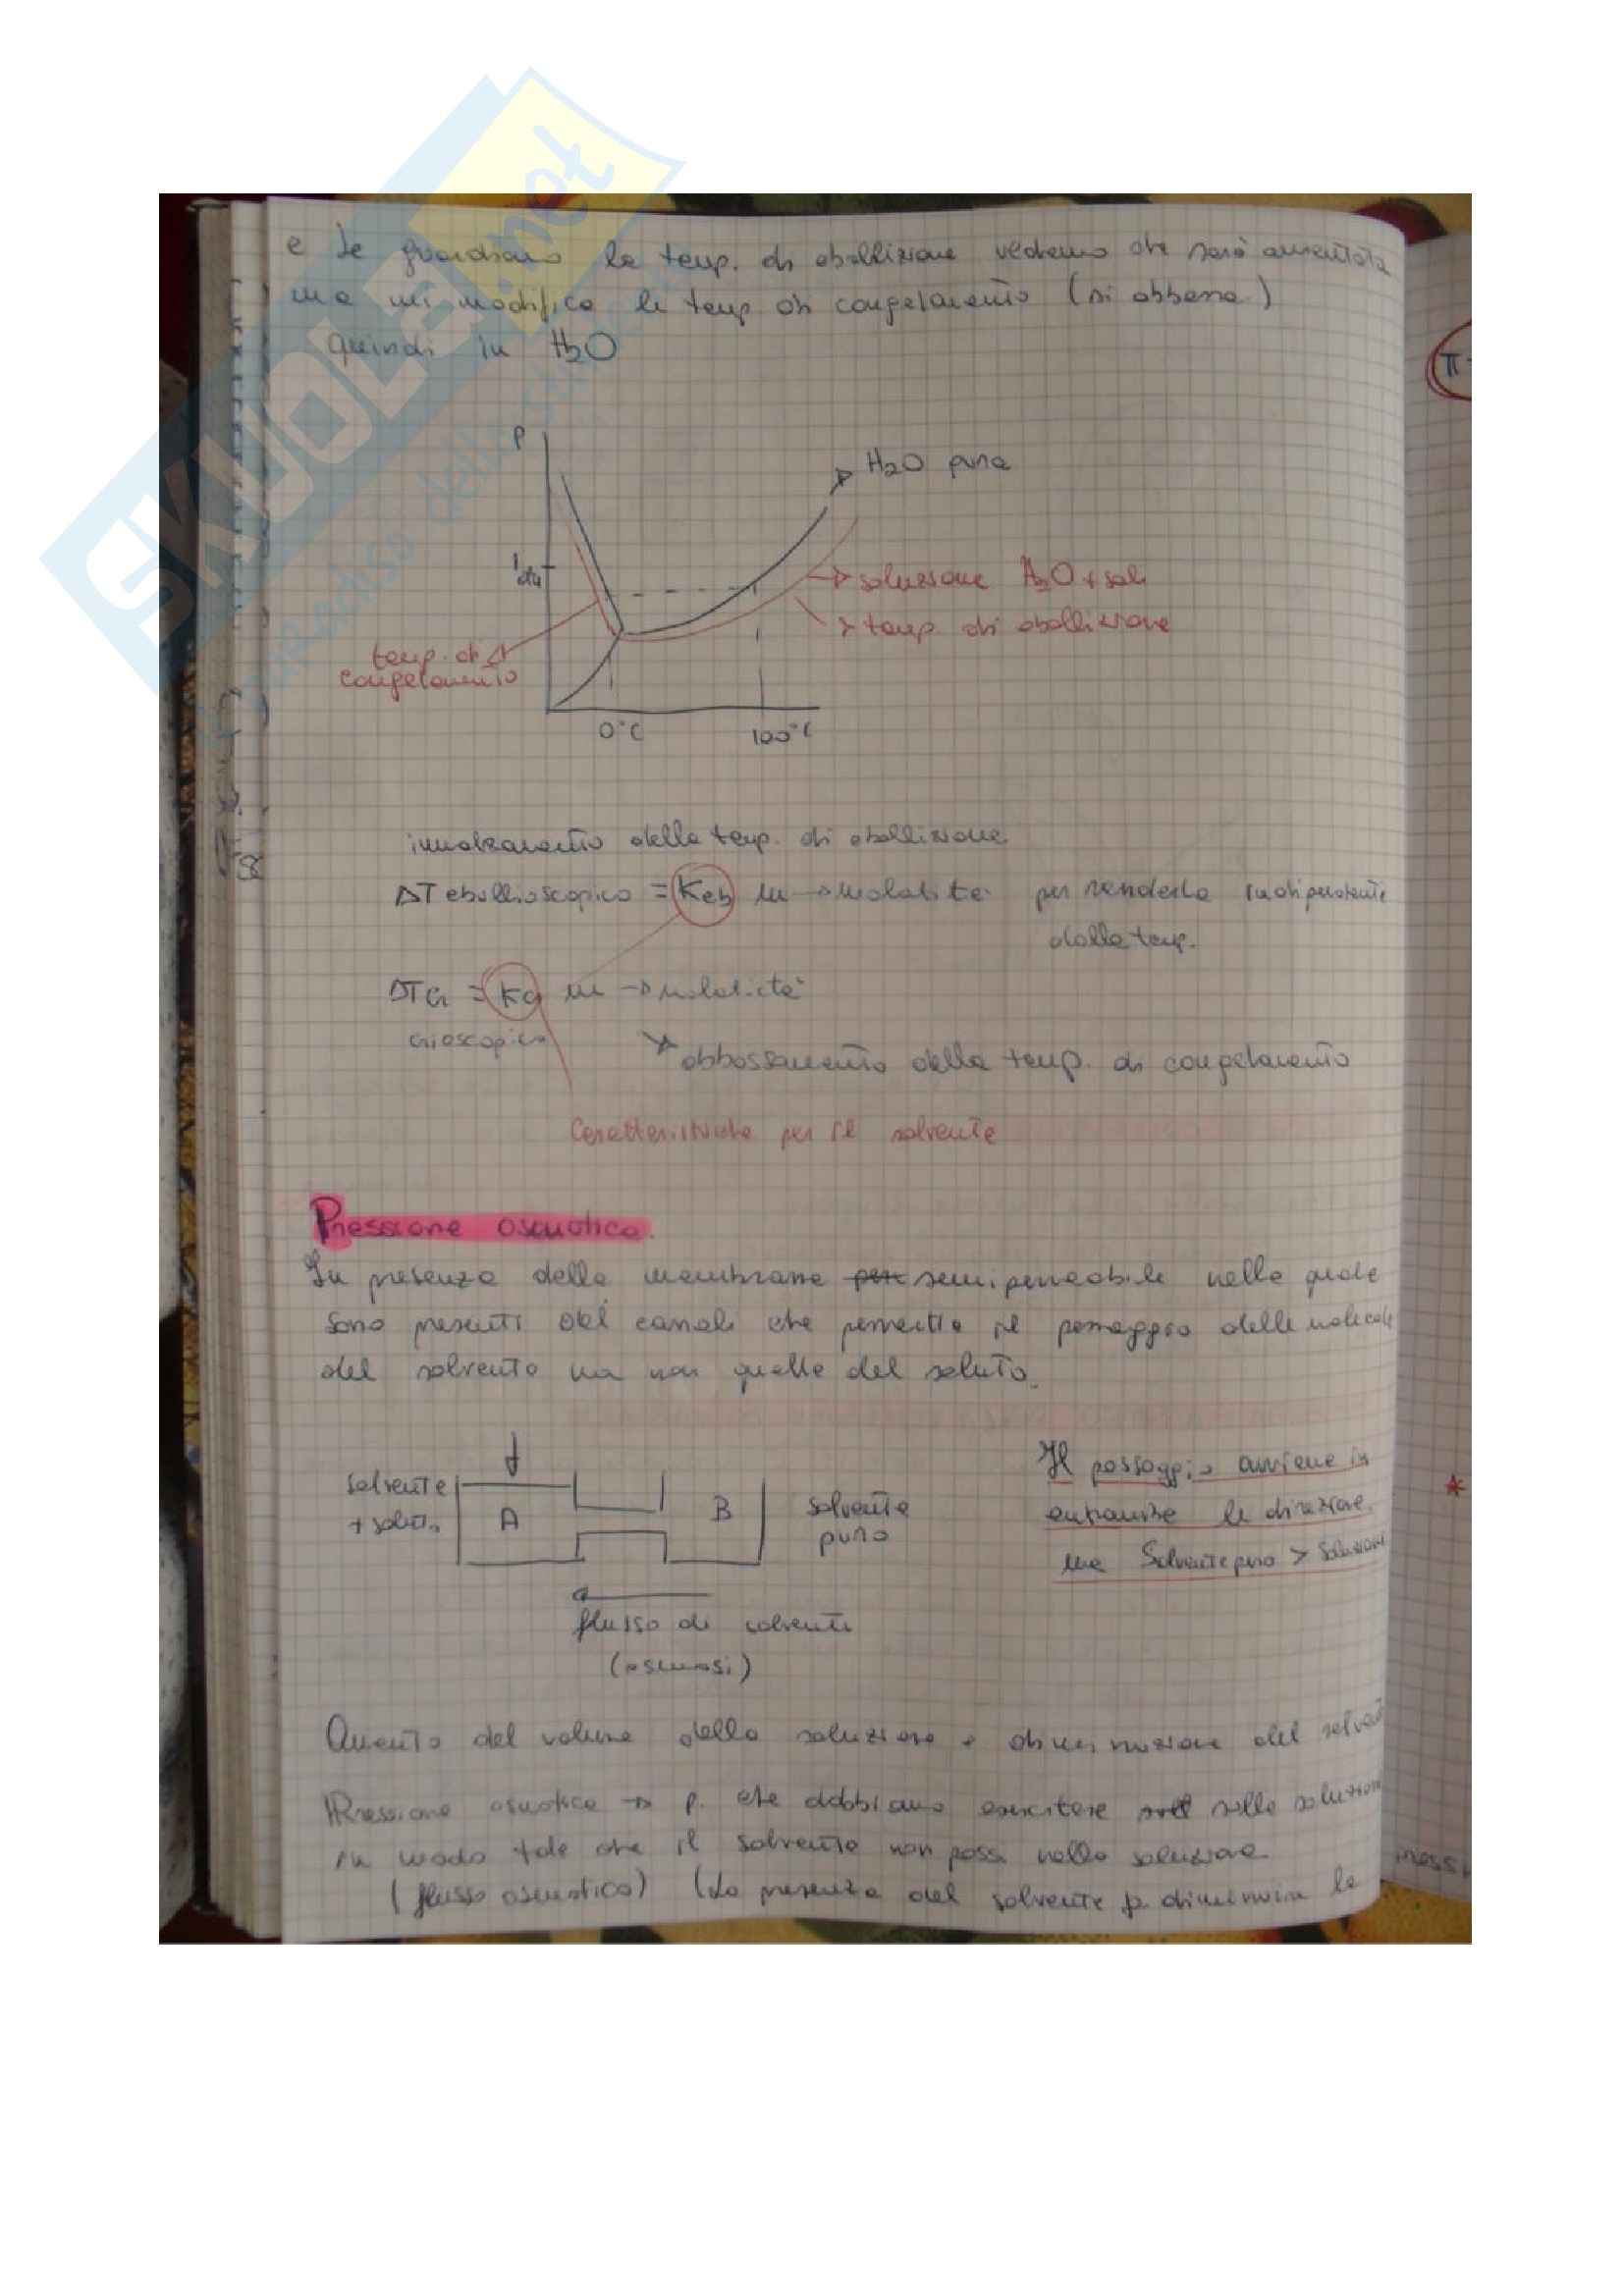 e se guardiamo la temp. di ebollizione vedremo che sarà aumentata
ma mi modifica la temp di congelamento (si abbassa)
quindi in H2O
P
H2O pura
1 atm
soluzione H2O + sali
> temp. di ebollizione
temp. di
congelamento
0°C
100°C
innalzamento della temp. di ebollizione
ΔT ebullioscopico = Keb m → molalità per renderla indipendente
dalla temp.
ΔTcr = Kcr m → molalità
crioscopico
abbassamento della temp. di congelamento
Caratteristiche per il solvente
Pressione osmotica.
In presenza della membrana semipermeabile nella quale
sono presenti dei canali che permette il passaggio delle molecole
del solvento ma non quelle del soluto.
solvente
+ soluto
A
B
solvente
puro
Il passaggio avviene in
entrambe le direzione
ma Solvente puro > Soluzione
flusso di solvente
(osmosi)
Aumento del volume della soluzione e diminuzione del solvent
Pressione osmotica → p. che dobbiamo esercitare sulla soluzione
in modo tale che il solvente non passi nella soluzione
(flusso osmotico) (La presenza del solvente diminuire la
π
*
SKUOLA.net